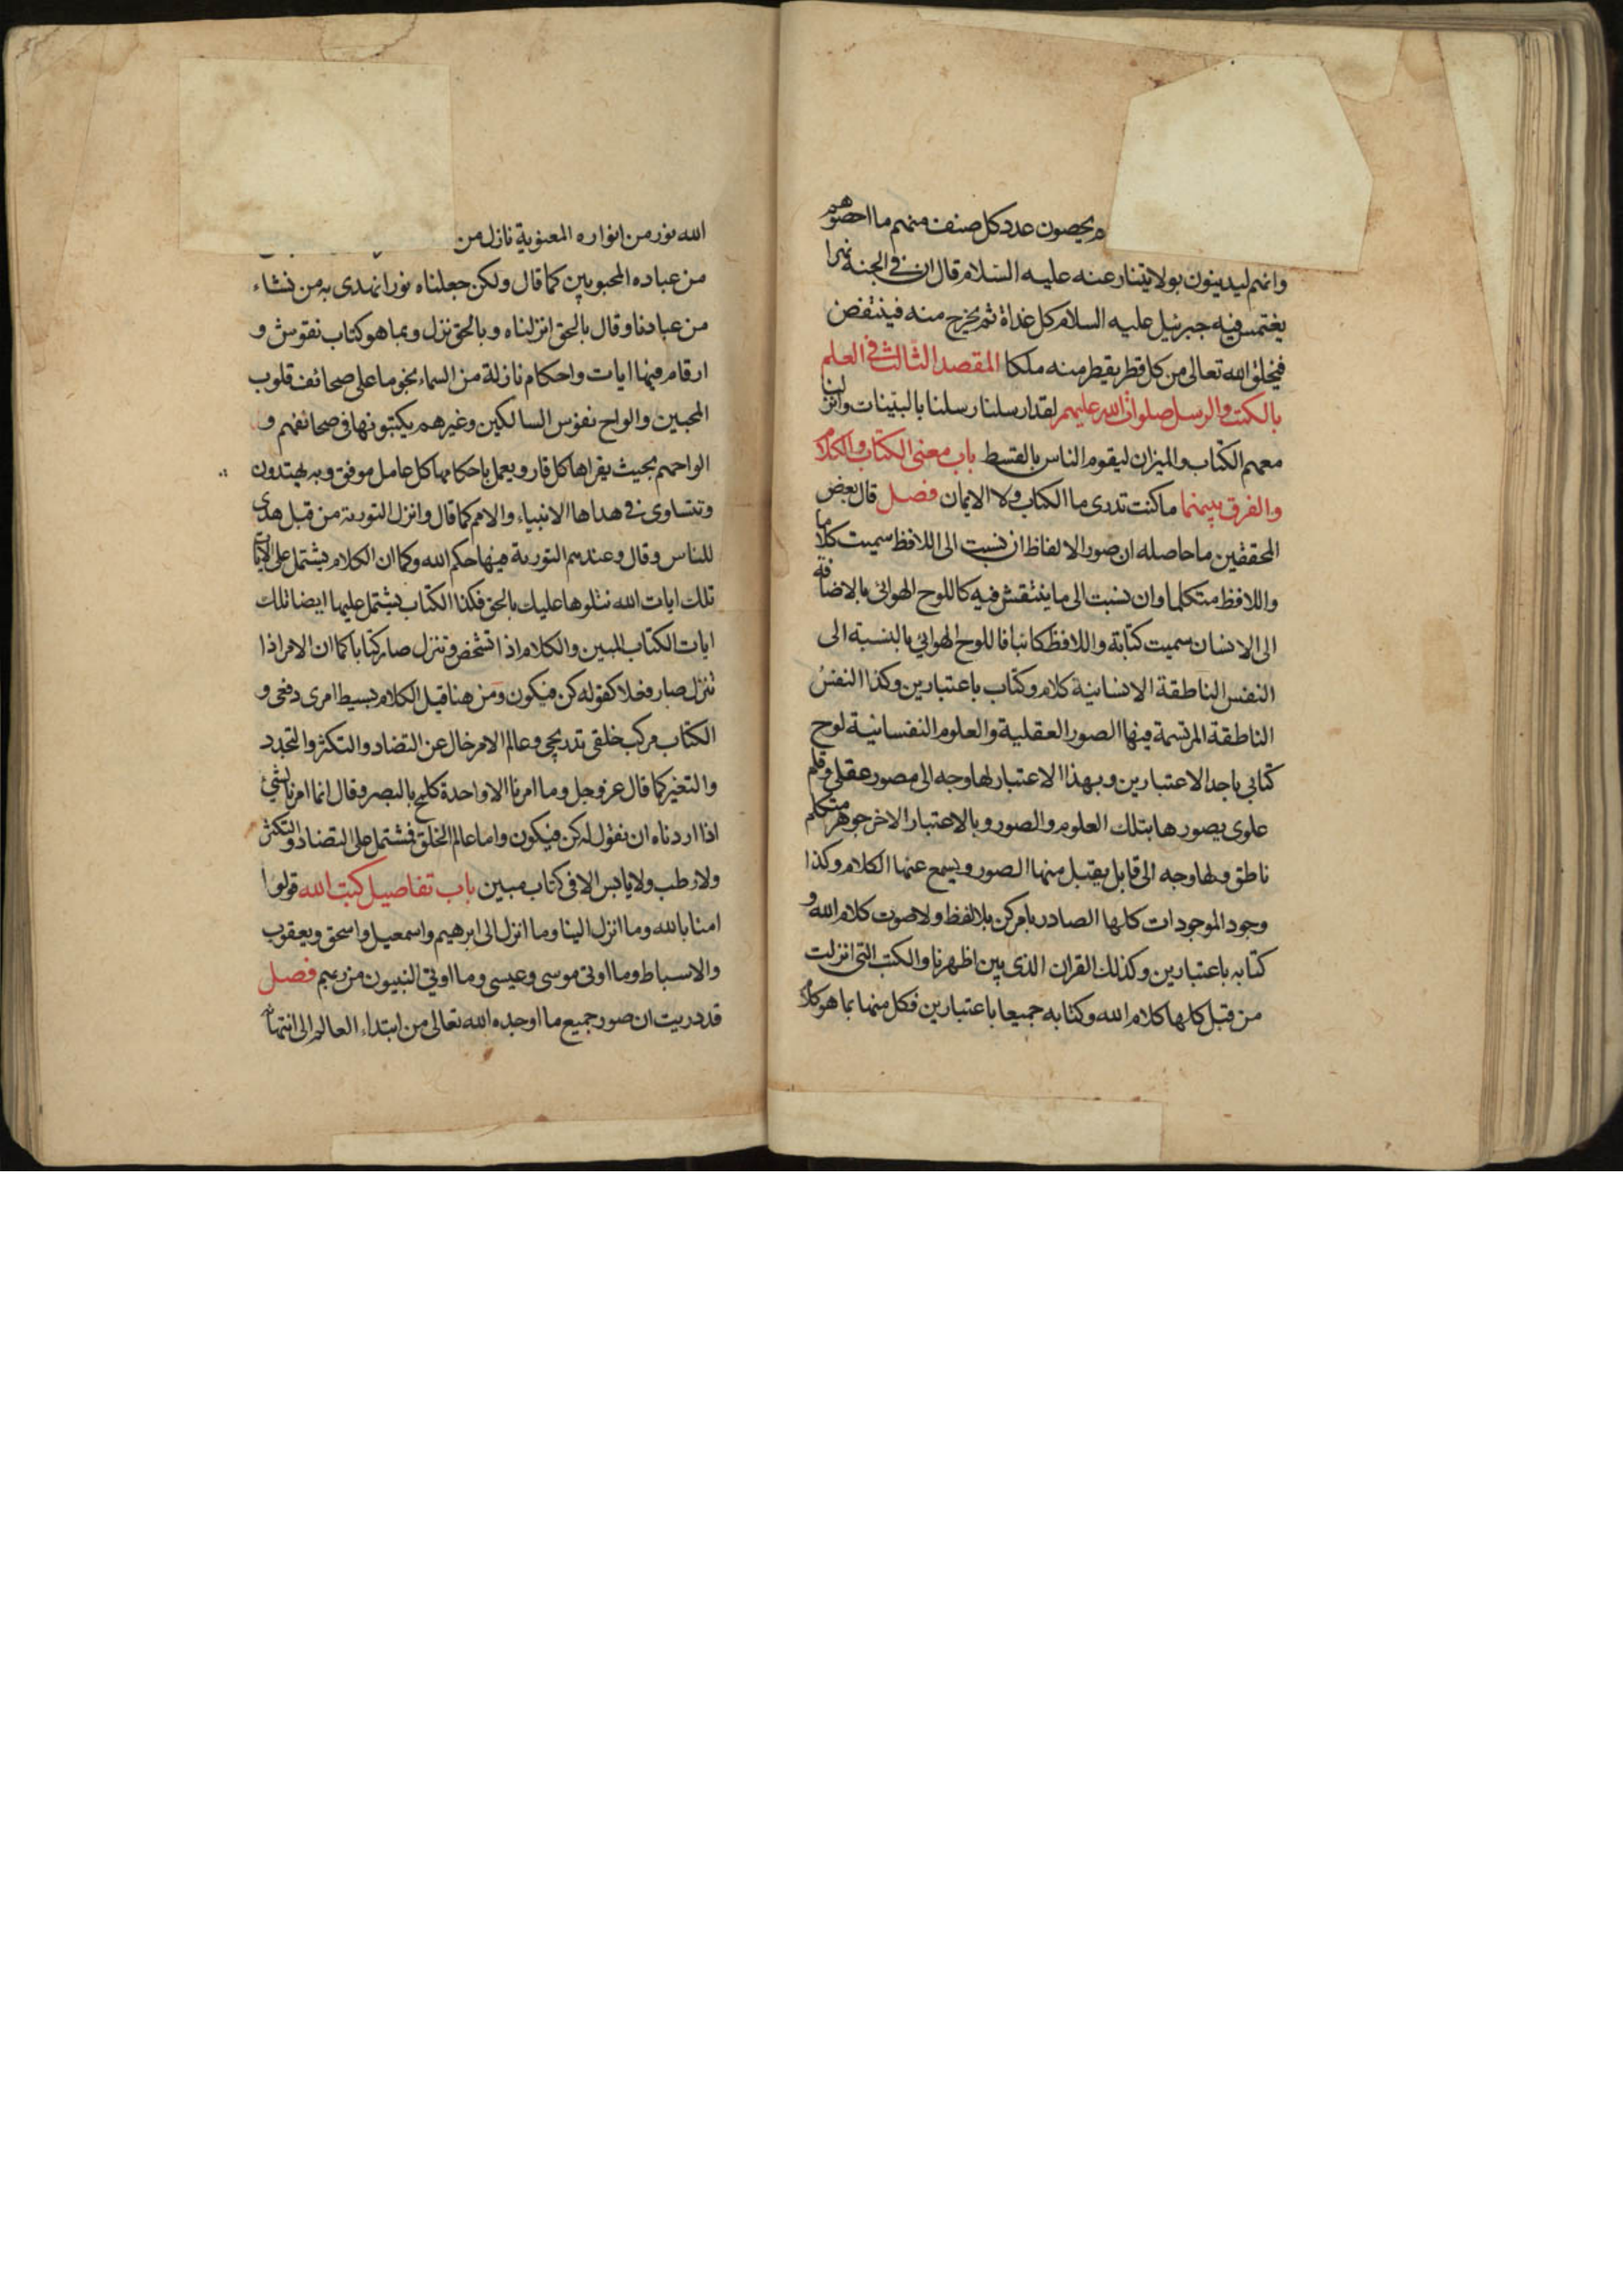 يحصون عدد كل صنف منهم ما احصوهم
وانهم ليدينون بولايتنا وعنه عليه السلام قال ان في الجنة نهرا
يغتمس فيه جبرئيل عليه السلام كل غداة ثم يخرج منه فينتفض
فيخلق الله تعالى من كل قطر يقطر منه ملكا المقصد الثالث في العلم
بالكتب والرسل صلوات الله عليهم لقد ارسلنا رسلنا بالبينات وانزلنا
معهم الكتاب والميزان ليقوم الناس بالقسط باب معنى الكتاب والكلام
والفرق بينهما ما كنت تدرى ما الكتاب ولا الايمان فصل قال بعض
المحققين ما حاصله ان صور الالفاظ ان نسبت الى اللافظ سميت كلاما
واللافظ متكلما وان نسبت الى ما ينتقش فيه كاللوح الهوائي بالاضافة
الى الانسان سميت كتابة واللافظ كاتبا فاللوح الهوائي بالنسبة الى
النفس الناطقة الانسانية كلام وكتاب باعتبارين وكذا النفس
الناطقة المرتسمة فيها الصور العقلية والعلوم النفسانية لوح
كتابي باحد الاعتبارين وبهذا الاعتبار لها وجه الى مصور عقلي وقلم
علوى يصورها بتلك العلوم والصور وبالاعتبار الاخر جوهر متكلم
ناطق ولها وجه الى قابل يقبل منها الصور ويسمع عنها الكلام وكذا
وجود الموجودات كلها الصادر بامر كن بلا لفظ ولا صوت كلام الله و
كتابه باعتبارين وكذلك القران الذى بين اظهرنا والكتب التى انزلت
من قبل كلها كلام الله وكتابه جميعا باعتبارين فكل منها بما هو كلام
الله نور من انواره المعنوية نازل من
من عباده المحبوبين كما قال ولكن جعلناه نورا نهدى به من نشاء
من عبادنا وقال بالحق انزلناه وبالحق نزل وبما هو كتاب نقوش و
ارقام فيها ايات واحكام نازلة من السماء نجوما على صحائف قلوب
المحبين والواح نفوس السالكين وغيرهم يكتبونها في صحائفهم و
الواحهم بحيث يقراها كل قار ويعمل باحكامها كل عامل موفق وبه يهتدون
وتتساوى في هداها الانبياء والامم كما قال وانزل التورية من قبل هدى
للناس وقال وعندهم التورية فيها حكم الله وكما ان الكلام يشتمل على الايات
تلك ايات الله نتلوها عليك بالحق فكذا الكتاب يشتمل عليها ايضا تلك
ايات الكتاب المبين والكلام اذا تشخص وتنزل صار كتابا كما ان الامر اذا
تنزل صار فعلا كقوله كن فيكون ومن هنا قيل الكلام بسيط امرى دفعي و
الكتاب مركب خلقي تدريجي وعالم الامر خال عن التضاد والتكثر والتجدد
والتغير كما قال عز وجل وما امرنا الا واحدة كلمح بالبصر وقال انما امرنا لشئ
اذا اردناه ان نقول له كن فيكون واما عالم الخلق فتشتمل على التضاد والتكثر
ولا رطب ولا يابس الا في كتاب مبين باب تفاصيل كتب الله قولوا
امنا بالله وما انزل الينا وما انزل الى ابرهيم واسمعيل واسحق ويعقوب
والاسباط وما اوتى موسى وعيسى وما اوتي النبيون من ربهم فصل
قد دريت ان صور جميع ما اوجده الله تعالى من ابتداء العالم الى انتهائه